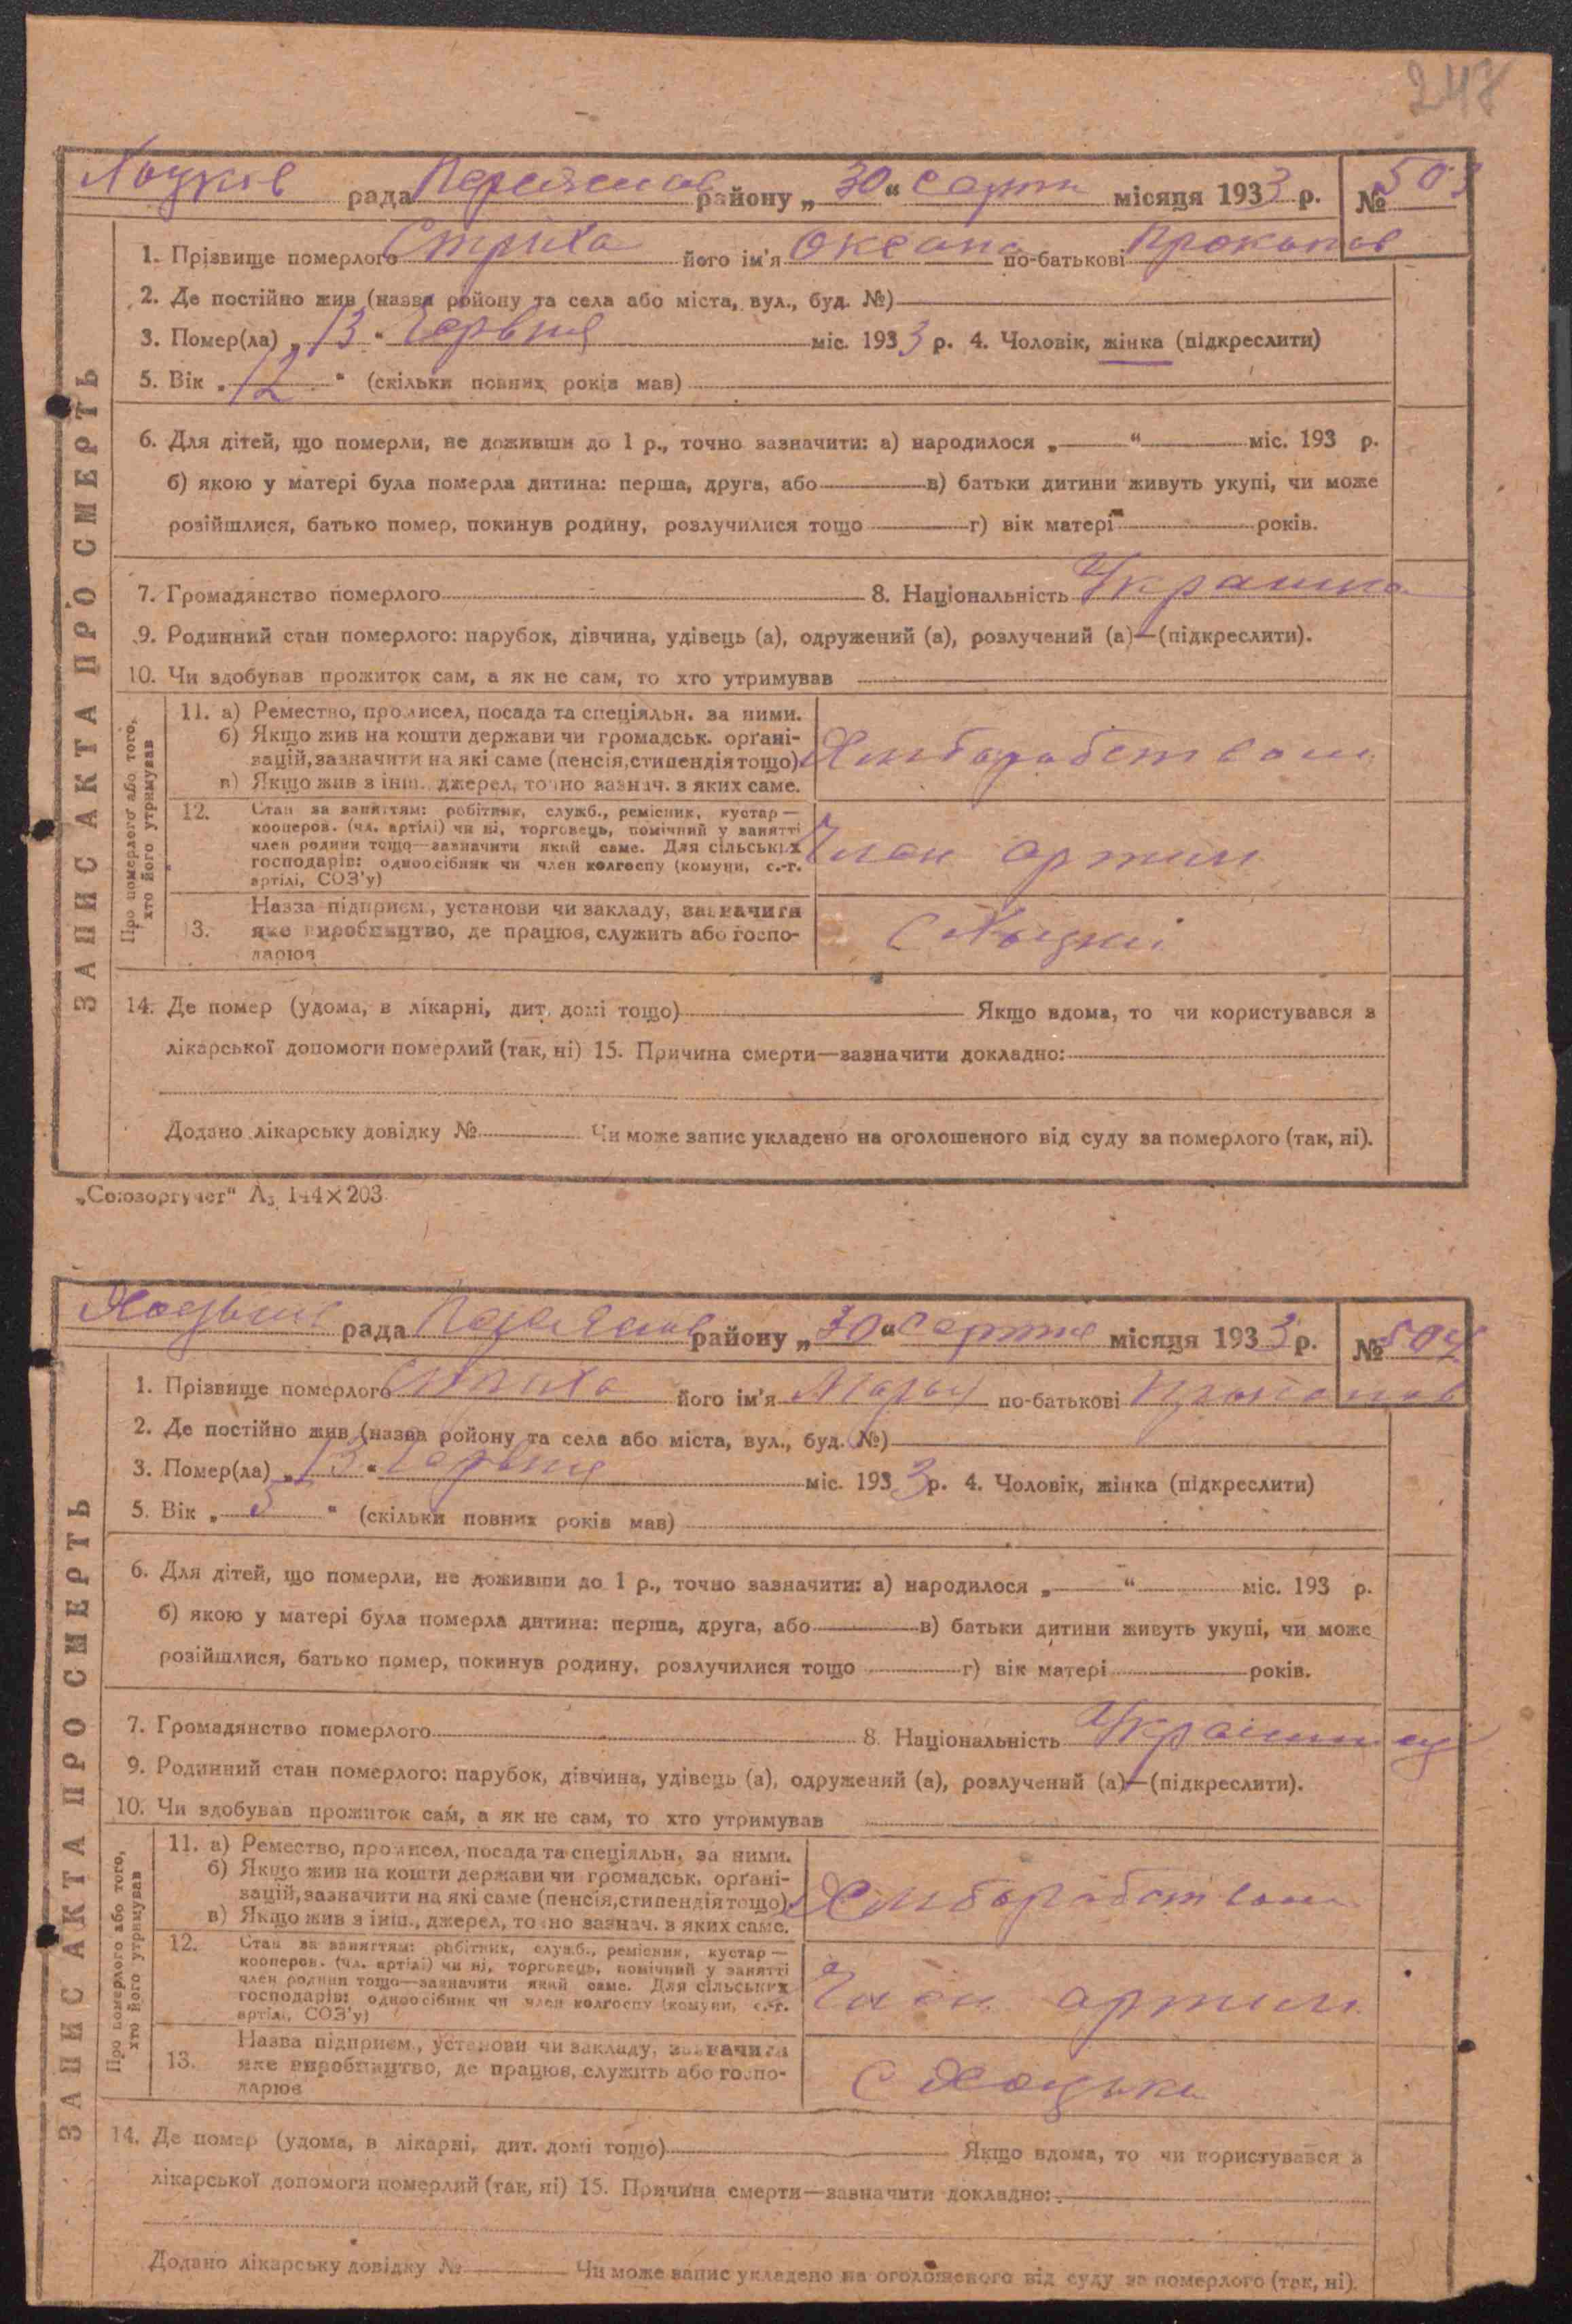 247
Хоцків рада Переяслав району „30“ Серпн місяця 1933 р. № 503
1. Прізвище померлого Стріха його ім'я Оксана по-батькові Прокопов
2. Де постійно жив (назва ройону та села або міста, вул., буд. №)
3. Помер(ла) „13“ Червня міс. 1933 р. 4. Чоловік, жінка (підкреслити)
5. Вік „12“ (скільки повних років мав)
6. Для дітей, що померли, не доживши до 1 р., точно зазначити: а) народилося „ “ міс. 193 р.
б) якою у матері була померла дитина: перша, друга, або в) батьки дитини живуть укупі, чи може
розійшлися, батько помер, покинув родину, розлучилися тощо г) вік матері років.
7. Громадянство померлого 8. Національність Украинка
9. Родинний стан померлого: парубок, дівчина, удівець (а), одружений (а), розлучений (а)—(підкреслити).
10. Чи здобував прожиток сам, а як не сам, то хто утримував
ЗАПИС АКТА ПРО СМЕРТЬ
Про померлого або того,
хто його утримував
11. а) Ремество, промисел, посада та спеціяльн. за ними.
б) Якщо жив на кошти держави чи громадськ. орґані-
зацій, зазначити на які саме (пенсія, стипендія тощо).
в) Якщо жив з інш. джерел, точно зазнач. з яких саме.
Хліборобством
12. Стан за заняттям: робітник, служб., ремісник, кустар—
кооперов. (чл. артілі) чи ні, торговець, помічний у занятті
член родини тощо—зазначити який саме. Для сільських
господарів: одноосібник чи член колгоспу (комуни, с.-г.
артілі, СОЗ'у)
Член артили
13. Назва підприєм., установи чи закладу, зазначити
яке виробництво, де працює, служить або госпо-
дарює
С Хоцкі
14. Де помер (удома, в лікарні, дит. домі тощо) Якщо вдома, то чи користувався з
лікарської допомоги померлий (так, ні) 15. Причина смерти—зазначити докладно:
Додано лікарську довідку № Чи може запис укладено на оголошеного від суду за померлого (так, ні).
„Союзоргучет“ А₅ 144×203
рада Переяслав району „30“ Серпня місяця 1933 р. № 504
1. Прізвище померлого Стриха його ім'я по-батькові Прокопов
2. Де постійно жив (назва ройону та села або міста, вул., буд. №)
3. Помер(ла) „13“ Червня міс. 1933 р. 4. Чоловік, жінка (підкреслити)
5. Вік „5“ (скільки повних років мав)
6. Для дітей, що померли, не доживши до 1 р., точно зазначити: а) народилося „ “ міс. 193 р.
б) якою у матері була померла дитина: перша, друга, або в) батьки дитини живуть укупі, чи може
розійшлися, батько помер, покинув родину, розлучилися тощо г) вік матері років.
7. Громадянство померлого 8. Національність
9. Родинний стан померлого: парубок, дівчина, удівець (а), одружений (а), розлучений (а)—(підкреслити).
10. Чи здобував прожиток сам, а як не сам, то хто утримував
ЗАПИС АКТА ПРО СМЕРТЬ
Про померлого або того,
хто його утримував
11. а) Ремество, промисел, посада та спеціяльн. за ними.
б) Якщо жив на кошти держави чи громадськ. орґані-
зацій, зазначити на які саме (пенсія, стипендія тощо).
в) Якщо жив з інш., джерел, точно зазнач. з яких саме.
Хліборобством
12. Стан за заняттям: робітник, служб., ремісник, кустар—
кооперов. (чл. артілі) чи ні, торговець, помічний у занятті
член родини тощо—зазначити який саме. Для сільських
господарів: одноосібник чи член колгоспу (комуни, с.-г.
артілі, СОЗ'у)
Член артили
13. Назва підприєм., установи чи закладу, зазначити
яке виробництво, де працює, служить або госпо-
дарює
С Хоцьки
14. Де помер (удома, в лікарні, дит. домі тощо) Якщо вдома, то чи користувався з
лікарської допомоги померлий (так, ні) 15. Причина смерти—зазначити докладно:
Додано лікарську довідку № Чи може запис укладено на оголошеного від суду за померлого (так, ні).